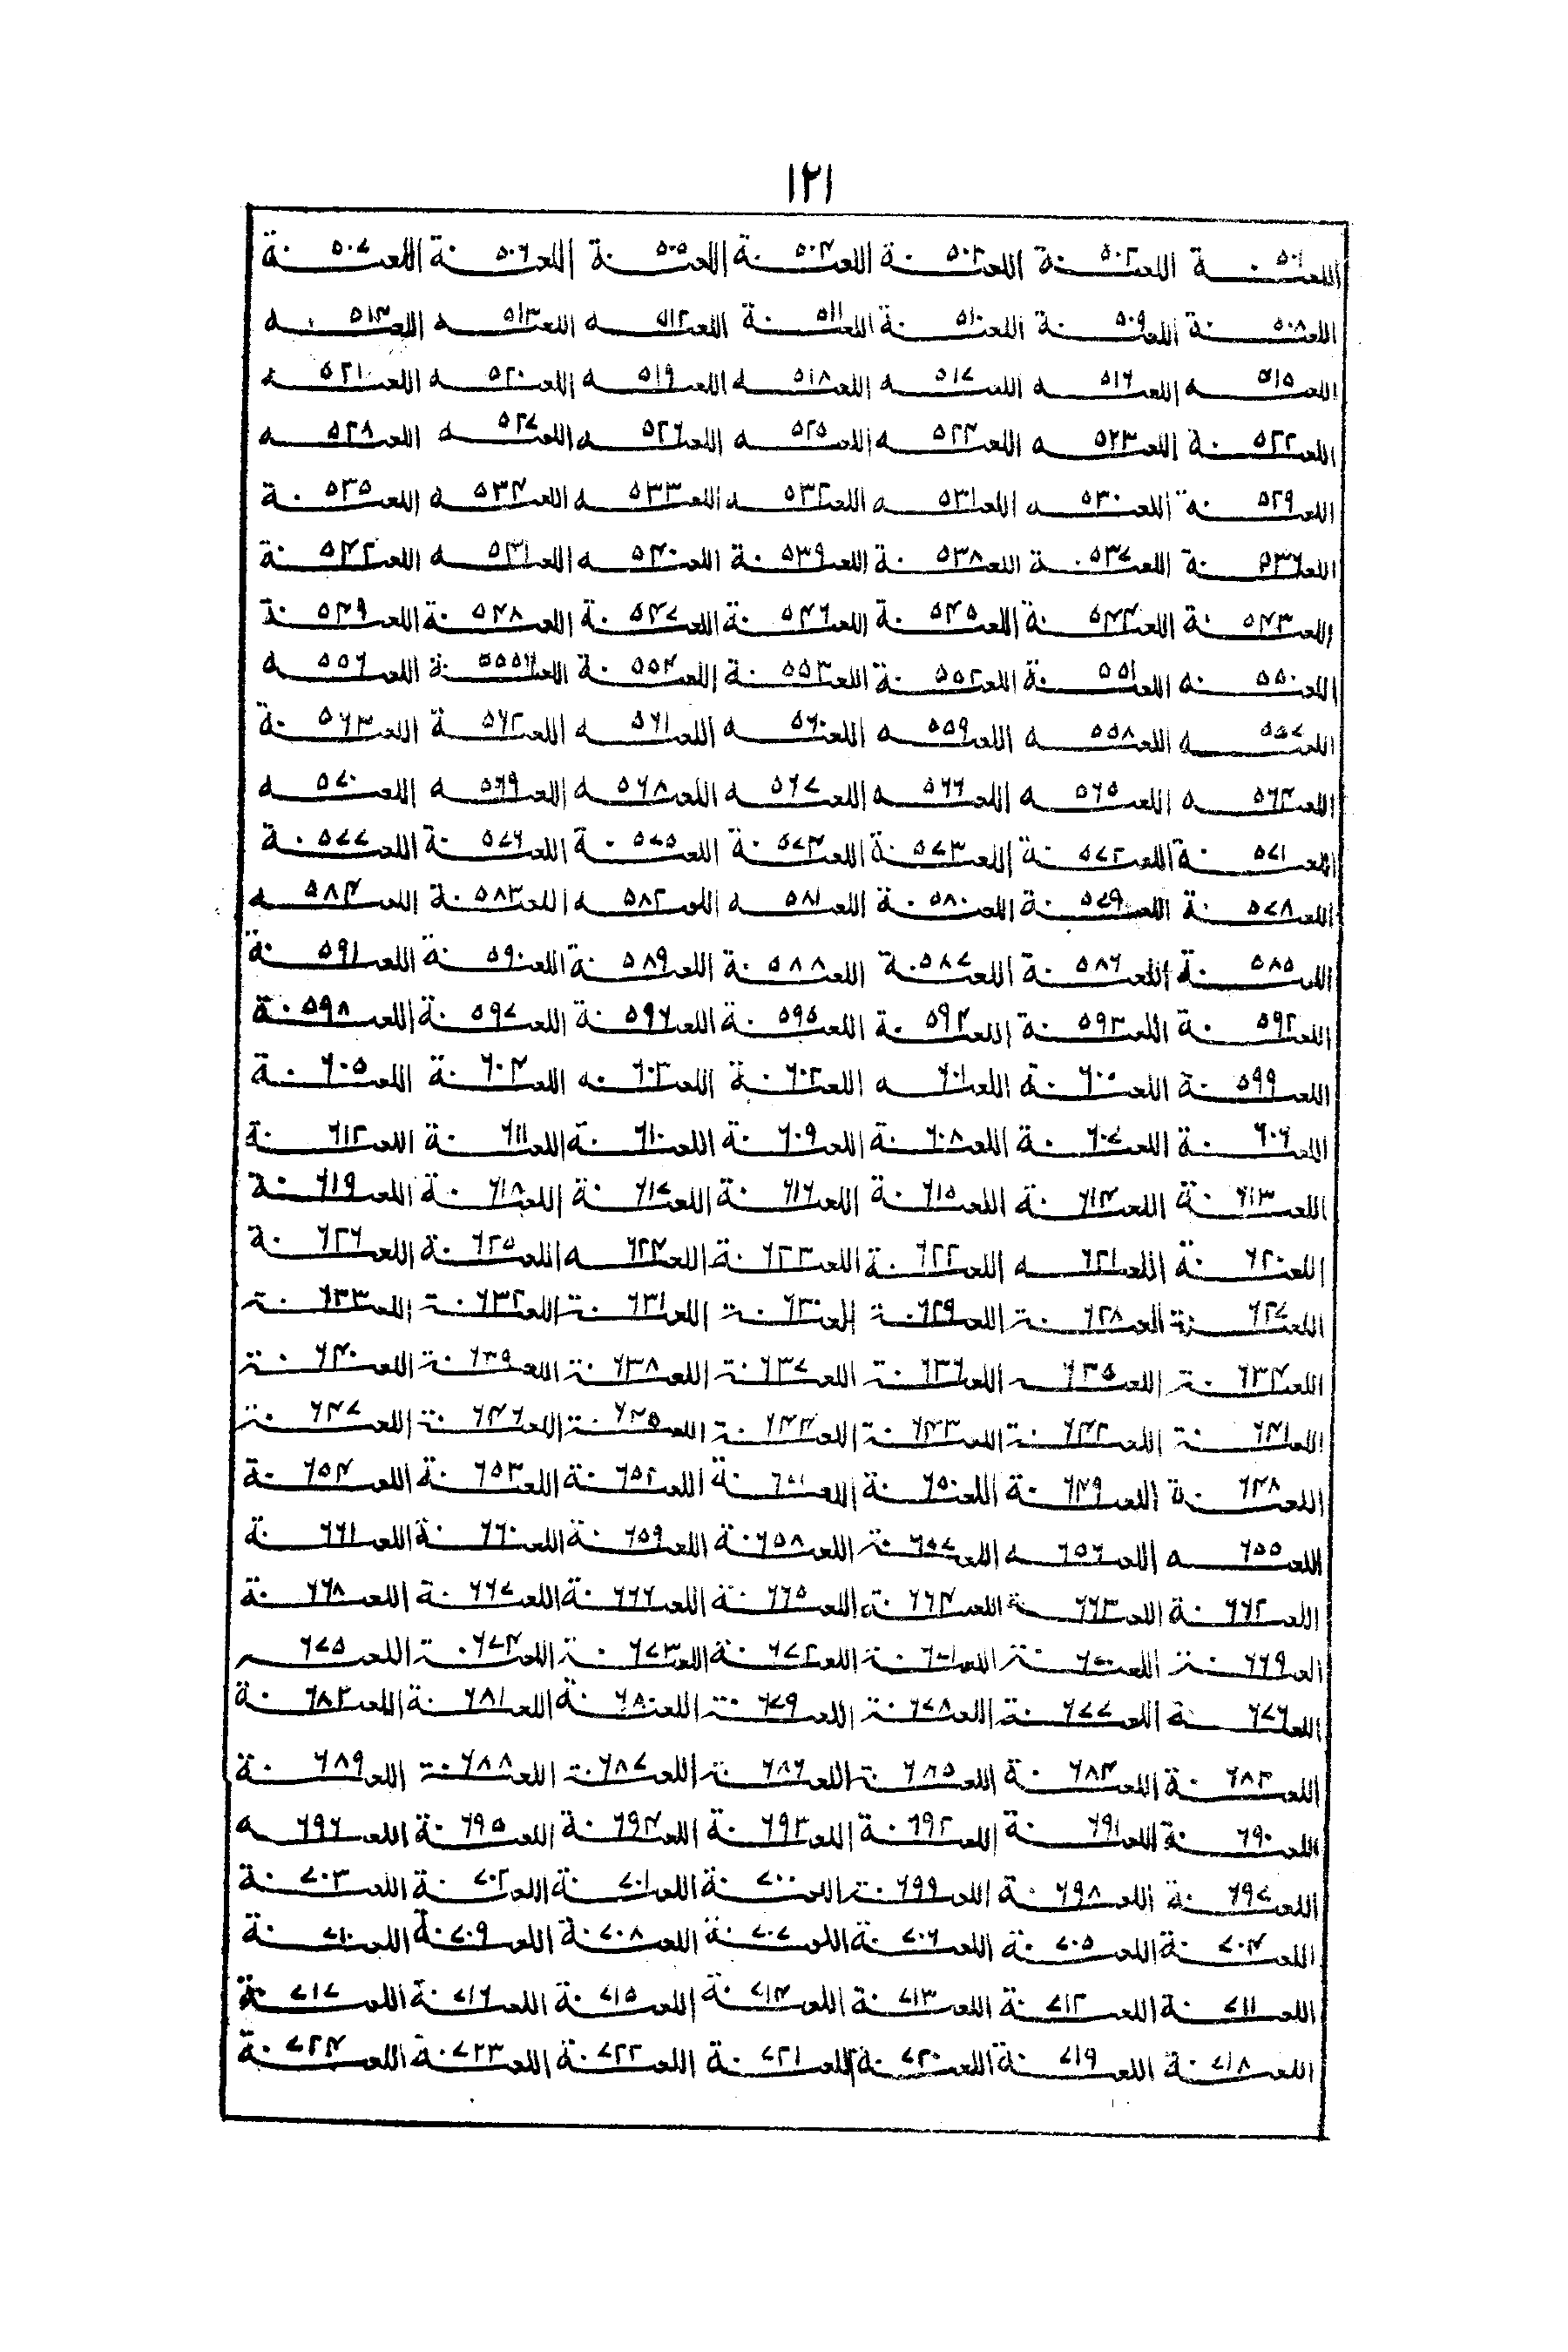 ١٢١
اللعنة ٥٠١ اللعنة ٥٠٢ اللعنة ٥٠٣ اللعنة ٥٠٤ اللعنة ٥٠٥ اللعنة ٥٠٦ اللعنة ٥٠٧
اللعنة ٥٠٨ اللعنة ٥٠٩ اللعنة ٥١٠ اللعنة ٥١١ اللعنة ٥١٢ اللعنة ٥١٣ اللعنة ٥١٤
اللعنة ٥١٥ اللعنة ٥١٦ اللعنة ٥١٧ اللعنة ٥١٨ اللعنة ٥١٩ اللعنة ٥٢٠ اللعنة ٥٢١
اللعنة ٥٢٢ اللعنة ٥٢٣ اللعنة ٥٢٤ اللعنة ٥٢٥ اللعنة ٥٢٦ اللعنة ٥٢٧ اللعنة ٥٢٨
اللعنة ٥٢٩ اللعنة ٥٣٠ اللعنة ٥٣١ اللعنة ٥٣٢ اللعنة ٥٣٣ اللعنة ٥٣٤ اللعنة ٥٣٥
اللعنة ٥٣٦ اللعنة ٥٣٧ اللعنة ٥٣٨ اللعنة ٥٣٩ اللعنة ٥٤٠ اللعنة ٥٤١ اللعنة ٥٤٢
اللعنة ٥٤٣ اللعنة ٥٤٤ اللعنة ٥٤٥ اللعنة ٥٤٦ اللعنة ٥٤٧ اللعنة ٥٤٨ اللعنة ٥٤٩
اللعنة ٥٥٠ اللعنة ٥٥١ اللعنة ٥٥٢ اللعنة ٥٥٣ اللعنة ٥٥٤ اللعنة ٥٥٥ اللعنة ٥٥٦
اللعنة ٥٥٧ اللعنة ٥٥٨ اللعنة ٥٥٩ اللعنة ٥٦٠ اللعنة ٥٦١ اللعنة ٥٦٢ اللعنة ٥٦٣
اللعنة ٥٦٤ اللعنة ٥٦٥ اللعنة ٥٦٦ اللعنة ٥٦٧ اللعنة ٥٦٨ اللعنة ٥٦٩ اللعنة ٥٧٠
اللعنة ٥٧١ اللعنة ٥٧٢ اللعنة ٥٧٣ اللعنة ٥٧٤ اللعنة ٥٧٥ اللعنة ٥٧٦ اللعنة ٥٧٧
اللعنة ٥٧٨ اللعنة ٥٧٩ اللعنة ٥٨٠ اللعنة ٥٨١ اللعنة ٥٨٢ اللعنة ٥٨٣ اللعنة ٥٨٤
اللعنة ٥٨٥ اللعنة ٥٨٦ اللعنة ٥٨٧ اللعنة ٥٨٨ اللعنة ٥٨٩ اللعنة ٥٩٠ اللعنة ٥٩١
اللعنة ٥٩٢ اللعنة ٥٩٣ اللعنة ٥٩٤ اللعنة ٥٩٥ اللعنة ٥٩٦ اللعنة ٥٩٧ اللعنة ٥٩٨
اللعنة ٥٩٩ اللعنة ٦٠٠ اللعنة ٦٠١ اللعنة ٦٠٢ اللعنة ٦٠٣ اللعنة ٦٠٤ اللعنة ٦٠٥
اللعنة ٦٠٦ اللعنة ٦٠٧ اللعنة ٦٠٨ اللعنة ٦٠٩ اللعنة ٦١٠ اللعنة ٦١١ اللعنة ٦١٢
اللعنة ٦١٣ اللعنة ٦١٤ اللعنة ٦١٥ اللعنة ٦١٦ اللعنة ٦١٧ اللعنة ٦١٨ اللعنة ٦١٩
اللعنة ٦٢٠ اللعنة ٦٢١ اللعنة ٦٢٢ اللعنة ٦٢٣ اللعنة ٦٢٤ اللعنة ٦٢٥ اللعنة ٦٢٦
اللعنة ٦٢٧ اللعنة ٦٢٨ اللعنة ٦٢٩ اللعنة ٦٣٠ اللعنة ٦٣١ اللعنة ٦٣٢ اللعنة ٦٣٣
اللعنة ٦٣٤ اللعنة ٦٣٥ اللعنة ٦٣٦ اللعنة ٦٣٧ اللعنة ٦٣٨ اللعنة ٦٣٩ اللعنة ٦٤٠
اللعنة ٦٤١ اللعنة ٦٤٢ اللعنة ٦٤٣ اللعنة ٦٤٤ اللعنة ٦٤٥ اللعنة ٦٤٦ اللعنة ٦٤٧
اللعنة ٦٤٨ اللعنة ٦٤٩ اللعنة ٦٥٠ اللعنة ٦٥١ اللعنة ٦٥٢ اللعنة ٦٥٣ اللعنة ٦٥٤
اللعنة ٦٥٥ اللعنة ٦٥٦ اللعنة ٦٥٧ اللعنة ٦٥٨ اللعنة ٦٥٩ اللعنة ٦٦٠ اللعنة ٦٦١
اللعنة ٦٦٢ اللعنة ٦٦٣ اللعنة ٦٦٤ اللعنة ٦٦٥ اللعنة ٦٦٦ اللعنة ٦٦٧ اللعنة ٦٦٨
اللعنة ٦٦٩ اللعنة ٦٧٠ اللعنة ٦٧١ اللعنة ٦٧٢ اللعنة ٦٧٣ اللعنة ٦٧٤ اللعنة ٦٧٥
اللعنة ٦٧٦ اللعنة ٦٧٧ اللعنة ٦٧٨ اللعنة ٦٧٩ اللعنة ٦٨٠ اللعنة ٦٨١ اللعنة ٦٨٢
اللعنة ٦٨٣ اللعنة ٦٨٤ اللعنة ٦٨٥ اللعنة ٦٨٦ اللعنة ٦٨٧ اللعنة ٦٨٨ اللعنة ٦٨٩
اللعنة ٦٩٠ اللعنة ٦٩١ اللعنة ٦٩٢ اللعنة ٦٩٣ اللعنة ٦٩٤ اللعنة ٦٩٥ اللعنة ٦٩٦
اللعنة ٦٩٧ اللعنة ٦٩٨ اللعنة ٦٩٩ اللعنة ٧٠٠ اللعنة ٧٠١ اللعنة ٧٠٢ اللعنة ٧٠٣
اللعنة ٧٠٤ اللعنة ٧٠٥ اللعنة ٧٠٦ اللعنة ٧٠٧ اللعنة ٧٠٨ اللعنة ٧٠٩ اللعنة ٧١٠
اللعنة ٧١١ اللعنة ٧١٢ اللعنة ٧١٣ اللعنة ٧١٤ اللعنة ٧١٥ اللعنة ٧١٦ اللعنة ٧١٧
اللعنة ٧١٨ اللعنة ٧١٩ اللعنة ٧٢٠ اللعنة ٧٢١ اللعنة ٧٢٢ اللعنة ٧٢٣ اللعنة ٧٢٤